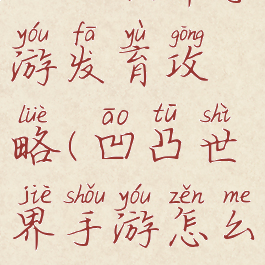 yóu fā yù gōng
游发育攻
lüè āo tū shì
略(凹凸世
jiè shǒu yóu zěn me
界手游怎么